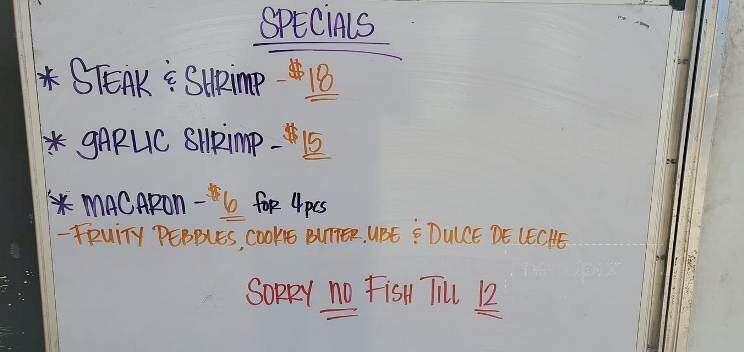 SPECIALS
* STEAK & SHRIMP - $18
* GARLIC SHRIMP - $15
* MACARON - $6 for 4pcs
- FRUITY PEBBLES, COOKIE BUTTER, UBE & DULCE DE LECHE
SORRY NO FISH TILL 12